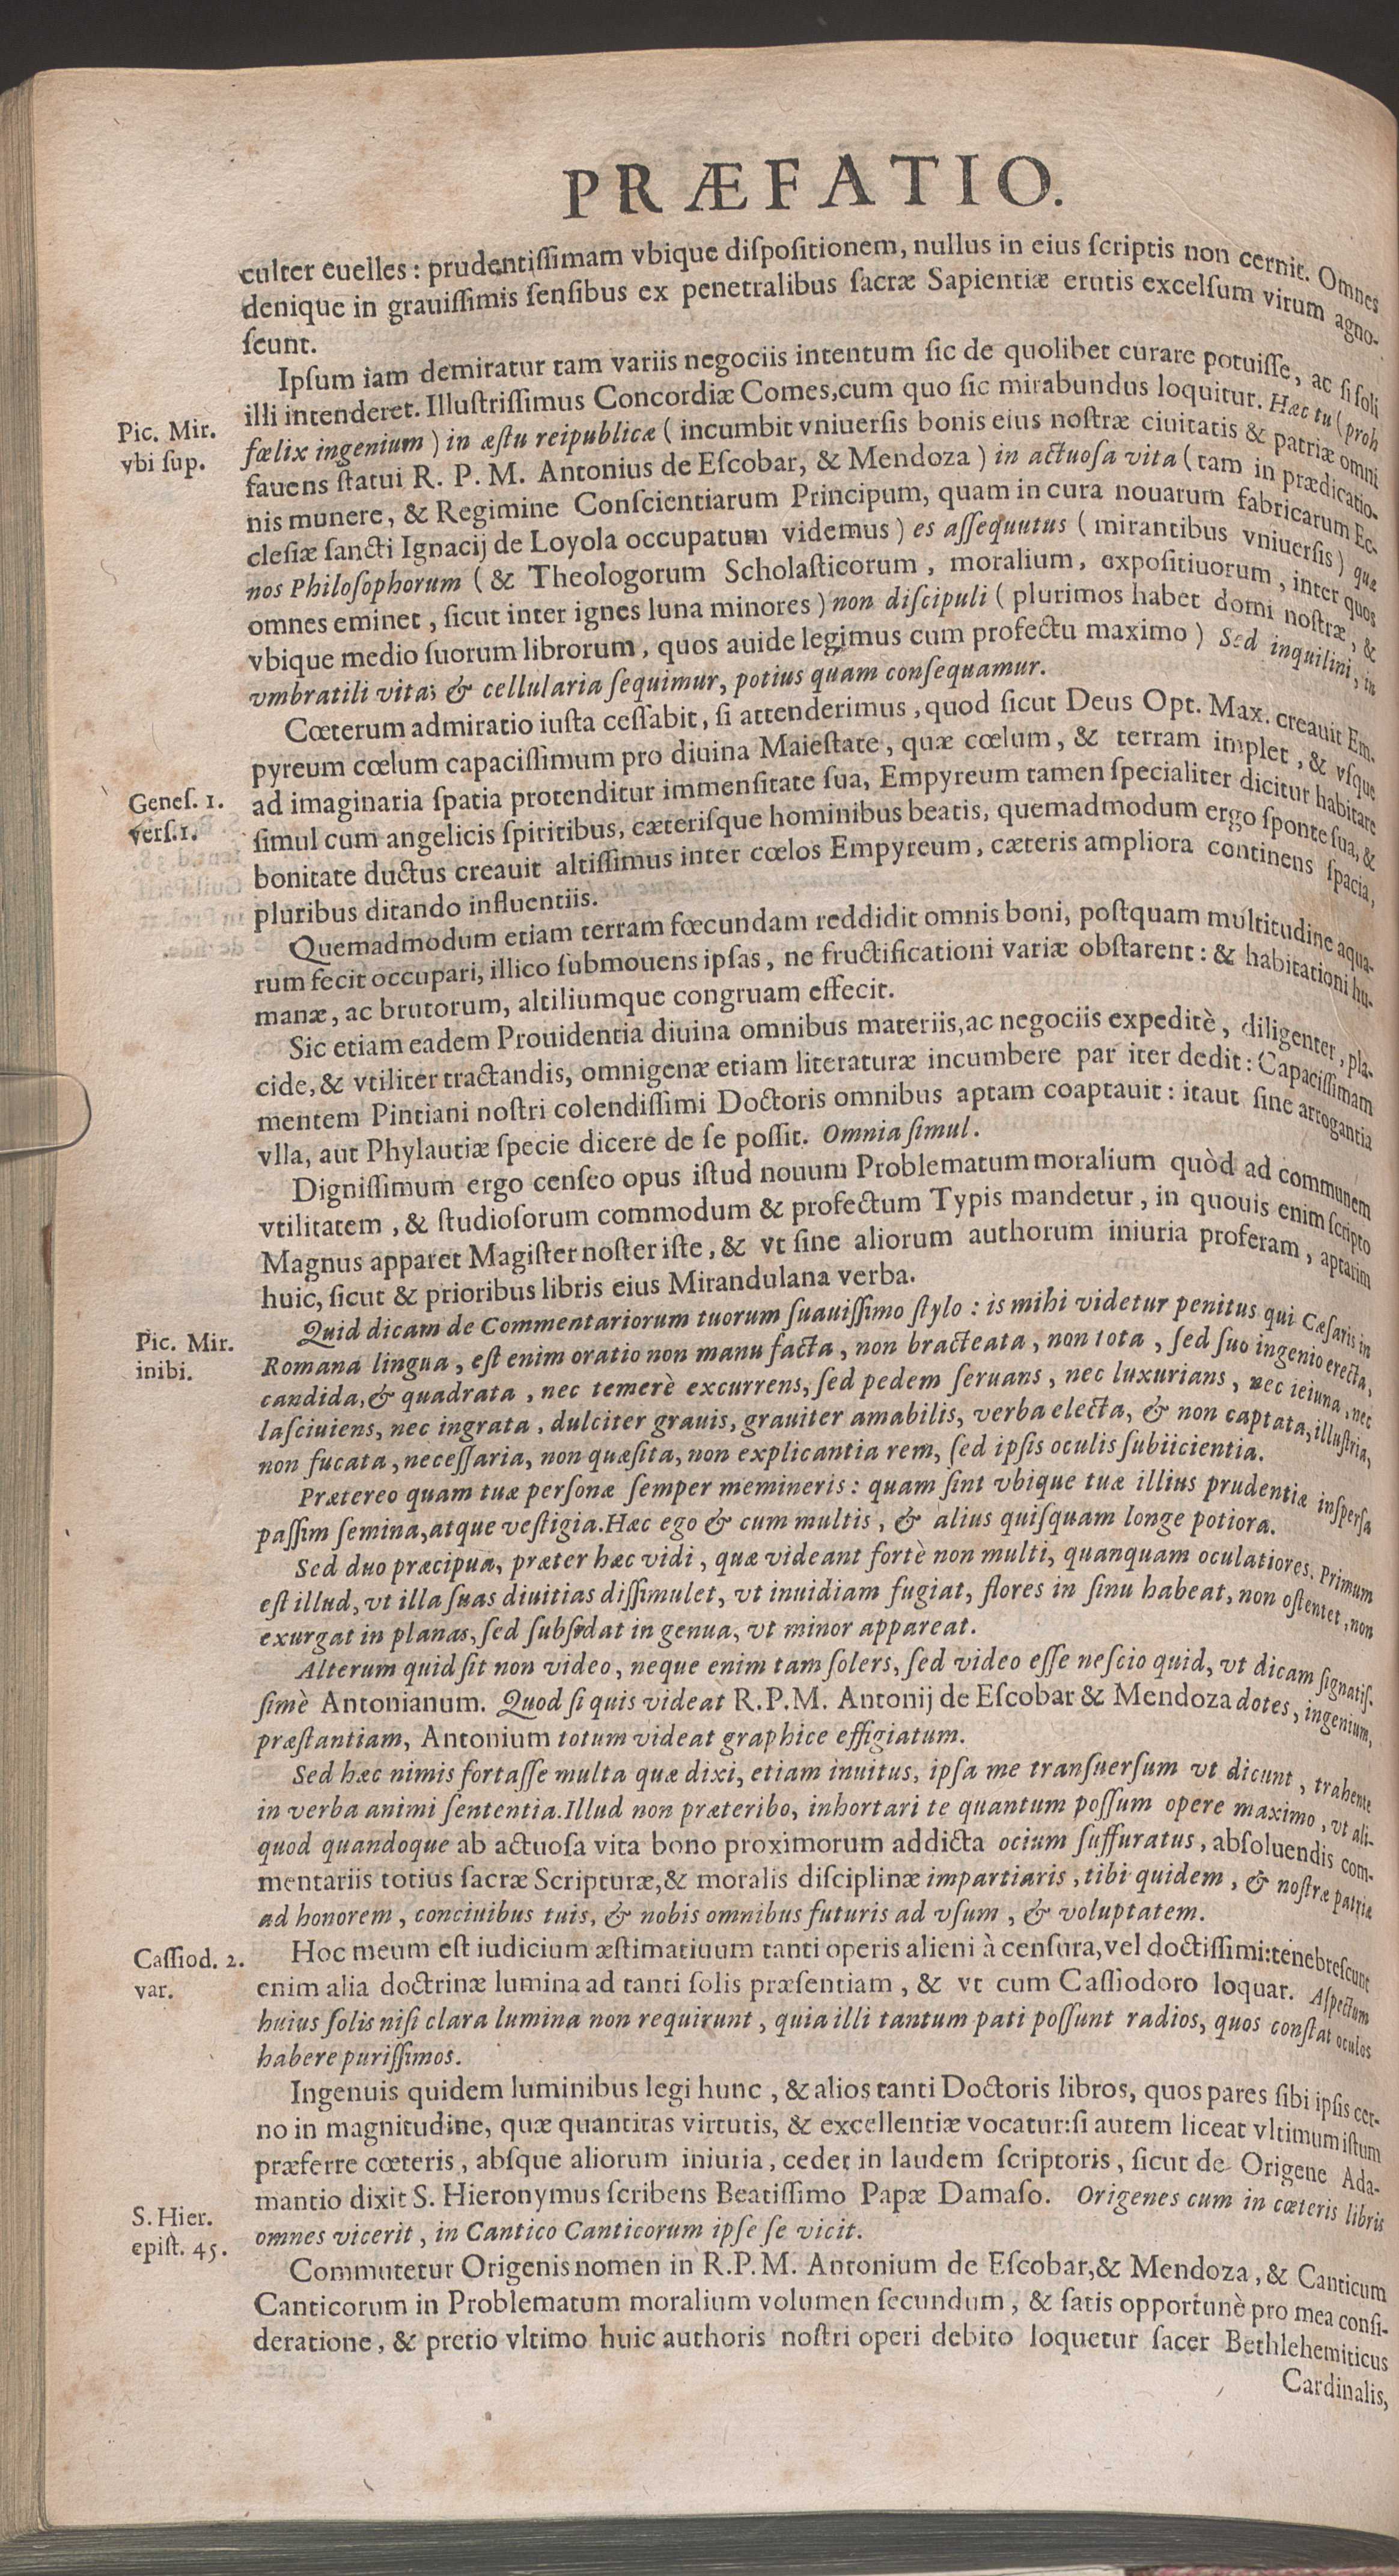 PRÆFATIO.
culter euelles : prudentiſſimam vbique diſpoſitionem, nullus in eius ſcriptis non cernit. Omnes
denique in grauiſſimis ſenſibus ex penetralibus ſacræ Sapientiæ erutis excelſum virum agno-
ſcunt.
Ipſum iam demiratur tam variis negociis intentum ſic de quolibet curare potuiſſe, ac ſi ſoli
illi intenderet. Illuſtriſſimus Concordiæ Comes, cum quo ſic mirabundus loquitur. Hæc tu ( proh
Pic. Mir.
vbi ſup.
fœlix ingenium ) in æſtu reipublicæ ( incumbit vniuerſis bonis eius noſtræ ciuitatis & patriæ omni
fauens ſtatui R. P. M. Antonius de Eſcobar, & Mendoza ) in actuoſa vita ( tam in prædicatio-
nis munere, & Regimine Conſcientiarum Principum, quam in cura nouarum fabricarum Ec-
cleſiæ ſancti Ignacij de Loyola occupatum videmus ) es aſſequutus ( mirantibus vniuerſis ) quæ
nos Philoſophorum ( & Theologorum Scholaſticorum , moralium, expoſitiuorum , inter quos
omnes eminet , ſicut inter ignes luna minores ) non diſcipuli ( plurimos habet domi noſtræ, &
vbique medio ſuorum librorum, quos auide legimus cum profectu maximo ) Sed inquilini, in
vmbratili vita, & cellularia ſequimur, potius quam conſequamur.
Cœterum admiratio iuſta ceſſabit, ſi attenderimus , quod ſicut Deus Opt. Max. creauit Em-
pyreum cœlum capaciſſimum pro diuina Maieſtate, quæ cœlum, & terram implet, & vſque
Geneſ. 1.
verſ. 1.
ad imaginaria ſpatia protenditur immenſitate ſua, Empyreum tamen ſpecialiter dicitur habitare
ſimul cum angelicis ſpiritibus, cæteriſque hominibus beatis, quemadmodum ergo ſponte ſua, &
bonitate ductus creauit altiſſimus inter cœlos Empyreum, cæteris ampliora continens ſpacia,
pluribus ditando influentiis.
Quemadmodum etiam terram fœcundam reddidit omnis boni, poſtquam multitudine aqua-
rum fecit occupari, illico ſubmouens ipſas, ne fructificationi variæ obſtarent : & habitationi hu-
manæ, ac brutorum, altiliumque congruam effecit.
Sic etiam eadem Prouidentia diuina omnibus materiis, ac negociis expeditè, diligenter, pla-
cide, & vtiliter tractandis, omnigenæ etiam literaturæ incumbere par iter dedit: Capaciſſimam
mentem Pintiani noſtri colendiſſimi Doctoris omnibus aptam coaptauit : itaut ſine arrogantia
vlla, aut Phylautiæ ſpecie dicere de ſe poſſit. Omnia ſimul.
Digniſſimum ergo cenſeo opus iſtud nouum Problematum moralium quòd ad communem
vtilitatem , & ſtudioſorum commodum & profectum Typis mandetur, in quouis enim ſcripto
Magnus apparet Magiſter noſter iſte, & vt ſine aliorum authorum iniuria proferam, aptatim
huic, ſicut & prioribus libris eius Mirandulana verba.
Pic. Mir.
inibi.
Quid dicam de Commentariorum tuorum ſuauiſſimo ſtylo : is mihi videtur penitus qui Cæſaris in
Romana lingua, eſt enim oratio non manu facta, non bracteata, non tota, ſed ſuo ingenio erecta,
candida, & quadrata, nec temerè excurrens, ſed pedem ſeruans, nec luxurians, nec ieiuna, nec
laſciuiens, nec ingrata, dulciter grauis, grauiter amabilis, verba electa, & non captata, illuſtria,
non fucata, neceſſaria, non quæſita, non explicantia rem, ſed ipſis oculis ſubiicientia.
Prætereo quam tuæ perſonæ ſemper memineris : quam ſint vbique tuæ illius prudentiæ inſperſa
paſſim ſemina, atque veſtigia. Hæc ego & cum multis, & alius quiſquam longe potiora.
Sed duo præcipua, præter hæc vidi, quæ videant fortè non multi, quanquam oculatiores. Primum
eſt illud, vt illa ſuas diuitias diſſimulet, vt inuidiam fugiat, flores in ſinu habeat, non oſtentet, non
exurgat in planas, ſed ſubſidat in genua, vt minor appareat.
Alterum quid ſit non video, neque enim tam ſolers, ſed video eſſe neſcio quid, vt dicam ſignatiſ-
ſimè Antonianum. Quod ſi quis videat R.P.M. Antonij de Eſcobar & Mendoza dotes, ingenium,
præſtantiam, Antonium totum videat graphice effigiatum.
Sed hæc nimis fortaſſe multa quæ dixi, etiam inuitus, ipſa me tranſuerſum vt dicunt, trahente
in verba animi ſententia. Illud non præteribo, inhortari te quantum poſſum opere maximo, vt ali-
quod quandoque ab actuoſa vita bono proximorum addicta ocium ſuffuratus, abſoluendis com-
mentariis totius ſacræ Scripturæ, & moralis diſciplinæ impartiaris, tibi quidem, & noſtræ patriæ
ad honorem, conciuibus tuis, & nobis omnibus futuris ad vſum, & voluptatem.
Caſſiod. 2.
var.
Hoc meum eſt iudicium æſtimatiuum tanti operis alieni à cenſura, vel doctiſſimi: tenebreſcunt
enim alia doctrinæ lumina ad tanti ſolis præſentiam, & vt cum Caſſiodoro loquar. Aſpectum
huius ſolis niſi clara lumina non requirunt, quia illi tantum pati poſſunt radios, quos conſtat oculos
habere puriſſimos.
Ingenuis quidem luminibus legi hunc, & alios tanti Doctoris libros, quos pares ſibi ipſis cer-
no in magnitudine, quæ quantitas virtutis, & excellentiæ vocatur: ſi autem liceat vltimum iſtum
præferre cœteris, abſque aliorum iniuria, cedet in laudem ſcriptoris, ſicut de Origene Ada-
mantio dixit S. Hieronymus ſcribens Beatiſſimo Papæ Damaſo. Origenes cum in cœteris libris
S. Hier.
epiſt. 45.
omnes vicerit, in Cantico Canticorum ipſe ſe vicit.
Commutetur Origenis nomen in R.P.M. Antonium de Eſcobar, & Mendoza, & Canticum
Canticorum in Problematum moralium volumen ſecundum, & ſatis opportunè pro mea conſi-
deratione, & pretio vltimo huic authoris noſtri operi debito loquetur ſacer Bethlehemiticus
Cardinalis,